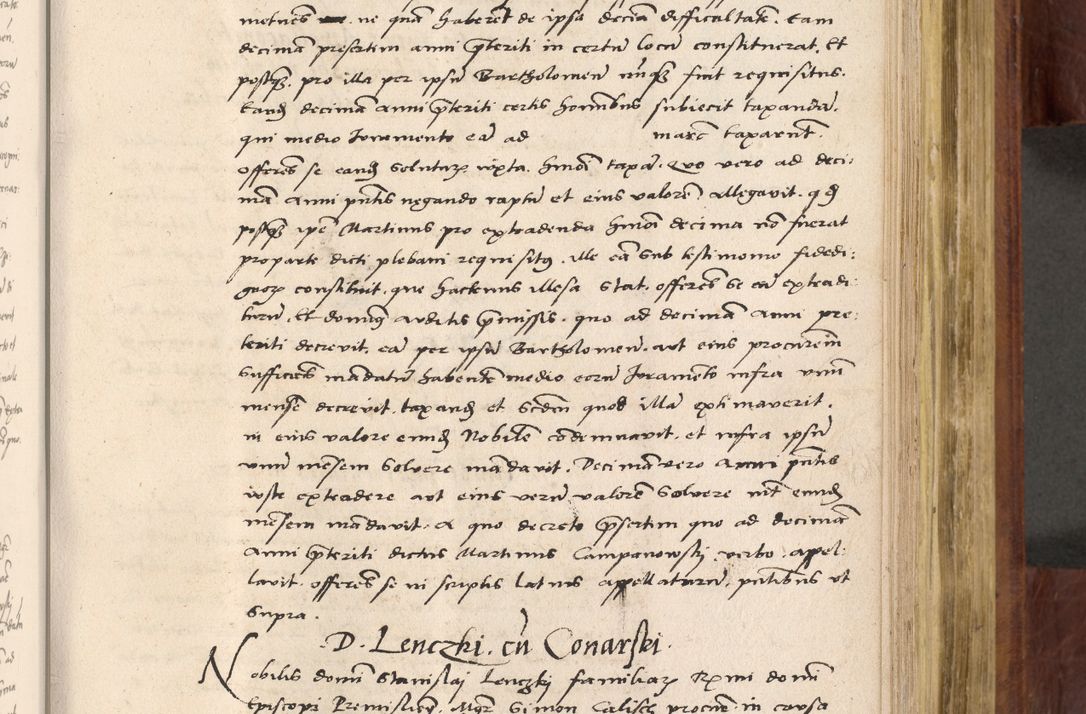 metuens ne quam haberet de ipsa decima difficultatem. Eam
decimam presertim anni preteriti in certum locum constituerat. Et
postquam pro illa per ipsum Bartholomeum nunquam fuit requisitus.
Eandem decimam anni preteriti certis hominibus subiecit taxandam.
qui medio Juramento eam ad marc taxarunt.
offerens se eandem soluturum iuxta huiusmodi taxam. Quo vero ad deci-
mam anni presentis negando raptum et eius valorem allegavit. quod
postquam ipse Martinus pro extradenda huiusmodi decima non fuerat
pro parte dicti plebani requisitus. ille eam sub testimonio fidedi-
gnorum constituit. que hactenus illesa stat. offerens se eam extradi-
turum. Et dominus auditis premissis. quo ad decimam anni pre-
teriti decrevit. eam per ipsum Bartholomeum aut eius procuratorem
sufficiens mandatum habentem medio eorum Juramento infra unum
mensem decrevit taxandam et secundum quod illam extimaverit.
in eius valore eundem Nobilem condemnavit. et infra ipsum
unum mensem solvere mandavit. Decimam vero anni presentis
iuste extradere aut eius verum valorem solvere infra eundem
mensem mandavit. A quo decreto presertim quo ad decimam
anni preteriti dictus Martinus Campanowski verbo appel-
lavit. offerens se in scriptis latius appellaturum. presentibus ut
supra.
D. Lenczki. cum Conarski.
Nobilis domini Stanislai Lenczki familiaris Reverendissimi domini
Episcopi Premislien. Magister Simon Calisch procurator in causa